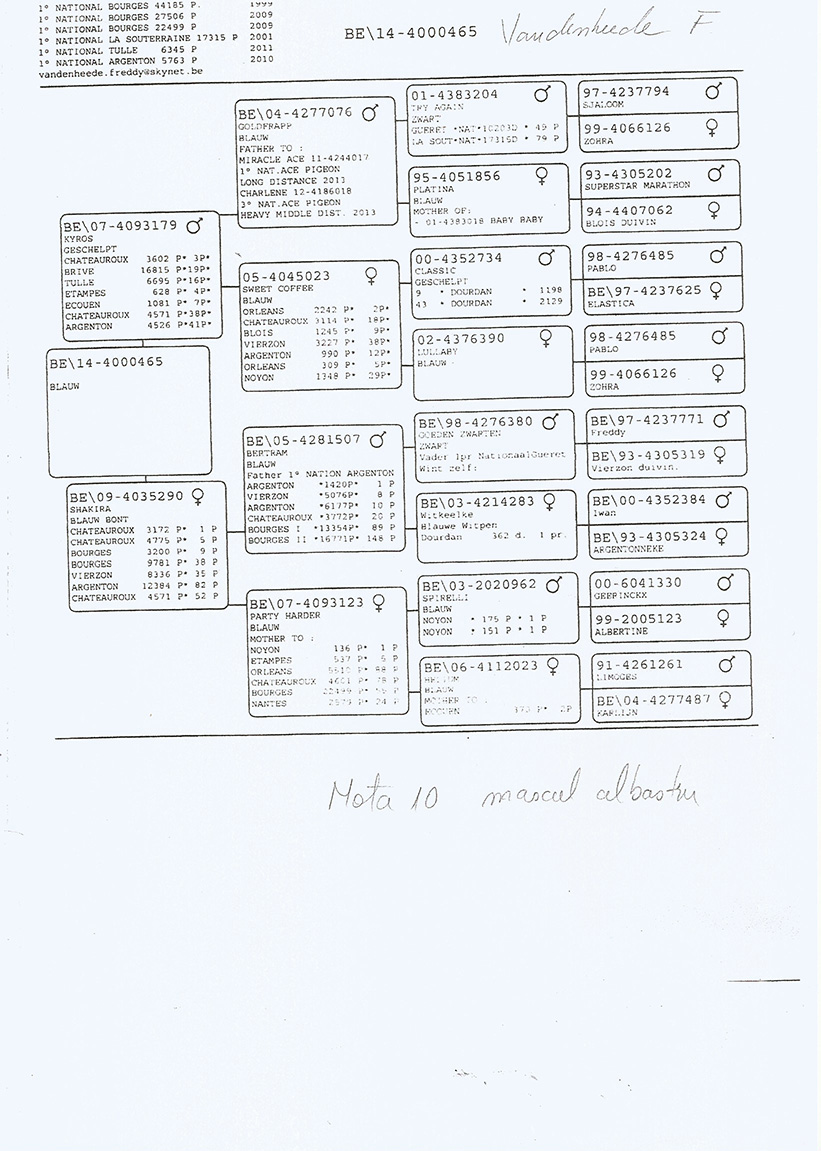 1º NATIONAL BOURGES 44185 P. 1999
1º NATIONAL BOURGES 27506 P 2009
1º NATIONAL BOURGES 22499 P 2009
1º NATIONAL LA SOUTERRAINE 17315 P 2001
1º NATIONAL TULLE 6345 P 2011
1º NATIONAL ARGENTON 5763 P 2010
vandenheede.freddy@skynet.be
BE\14-4000465 Vandenheede F
BE\14-4000465
BLAUW
BE\07-4093179 ♂
KYROS
GESCHELPT
CHATEAUROUX 3602 P* 3P*
BRIVE 16815 P*19P*
TULLE 6695 P*16P*
ETAMPES 628 P* 4P*
ECOUEN 1081 P* 7P*
CHATEAUROUX 4571 P*38P*
ARGENTON 4526 P*41P*
BE\09-4035290 ♀
SHAKIRA
BLAUW BONT
CHATEAUROUX 3172 P* 1 P
CHATEAUROUX 4775 P* 5 P
BOURGES 3200 P* 9 P
BOURGES 9781 P* 38 P
VIERZON 8336 P* 35 P
ARGENTON 12384 P* 82 P
CHATEAUROUX 4571 P* 52 P
BE\04-4277076 ♂
GOLDFRAPP
BLAUW
FATHER TO :
MIRACLE ACE 11-4244017
1º NAT.ACE PIGEON
LONG DISTANCE 2013
CHARLENE 12-4186018
3º NAT.ACE PIGEON
HEAVY MIDDLE DIST. 2013
05-4045023 ♀
SWEET COFFEE
BLAUW
ORLEANS 2242 P* 2P*
CHATEAUROUX 3114 P* 18P*
BLOIS 1245 P* 9P*
VIERZON 3227 P* 38P*
ARGENTON 990 P* 12P*
ORLEANS 309 P* 5P*
NOYON 1348 P* 29P*
BE\05-4281507 ♂
BERTRAM
BLAUW
Father 1º NATION ARGENTON
ARGENTON *1420P* 1 P
VIERZON *5076P* 8 P
ARGENTON *6177P* 10 P
CHATEAUROUX *3772P* 20 P
BOURGES I *13354P* 89 P
BOURGES II *16771P* 148 P
BE\07-4093123 ♀
PARTY HARDER
BLAUW
MOTHER TO :
NOYON 136 P* 1 P
ETAMPES 537 P* 5 P
ORLEANS
CHATEAUROUX
BOURGES 22499 P*
NANTES 24 P
01-4383204 ♂
TRY AGAIN
ZWART
GUERET *NAT*10203D * 49 P
LA SOUT*NAT*17315D * 79 P
95-4051856 ♀
PLATINA
BLAUW
MOTHER OF:
- 01-4383018 BABY BABY
00-4352734 ♂
CLASSIC
GESCHELPT
9 * DOURDAN * 1198
43 * DOURDAN * 2129
02-4376390 ♀
LULLABY
BLAUW
BE\98-4276380 ♂
GOEDEN ZWARTEN
ZWART
Vader 1pr NationaalGueret
Wint zelf:
BE\03-4214283 ♀
Witkeelke
Blauwe Witpen
Dourdan 362 d. 1 pr.
BE\03-2020962 ♂
SPIRELLI
BLAUW
NOYON * 175 P * 1 P
NOYON * 151 P * 1 P
BE\06-4112023 ♀
BLAUW
MOTHER TO :
2P
97-4237794 ♂
SJALOOM
99-4066126 ♀
ZOHRA
93-4305202 ♂
SUPERSTAR MARATHON
94-4407062 ♀
BLOIS DUIVIN
98-4276485 ♂
PABLO
BE\97-4237625 ♀
ELASTICA
98-4276485 ♂
PABLO
99-4066126 ♀
ZOHRA
BE\97-4237771 ♂
Freddy
BE\93-4305319 ♀
Vierzon duivin.
BE\00-4352384 ♂
Iwan
BE\93-4305324 ♀
ARGENTONNEKE
00-6041330 ♂
GEERINCKX
99-2005123 ♀
ALBERTINE
91-4261261 ♂
LIMOGES
BE\04-4277487 ♀
KARLIJN
Nota 10 mascul albastru